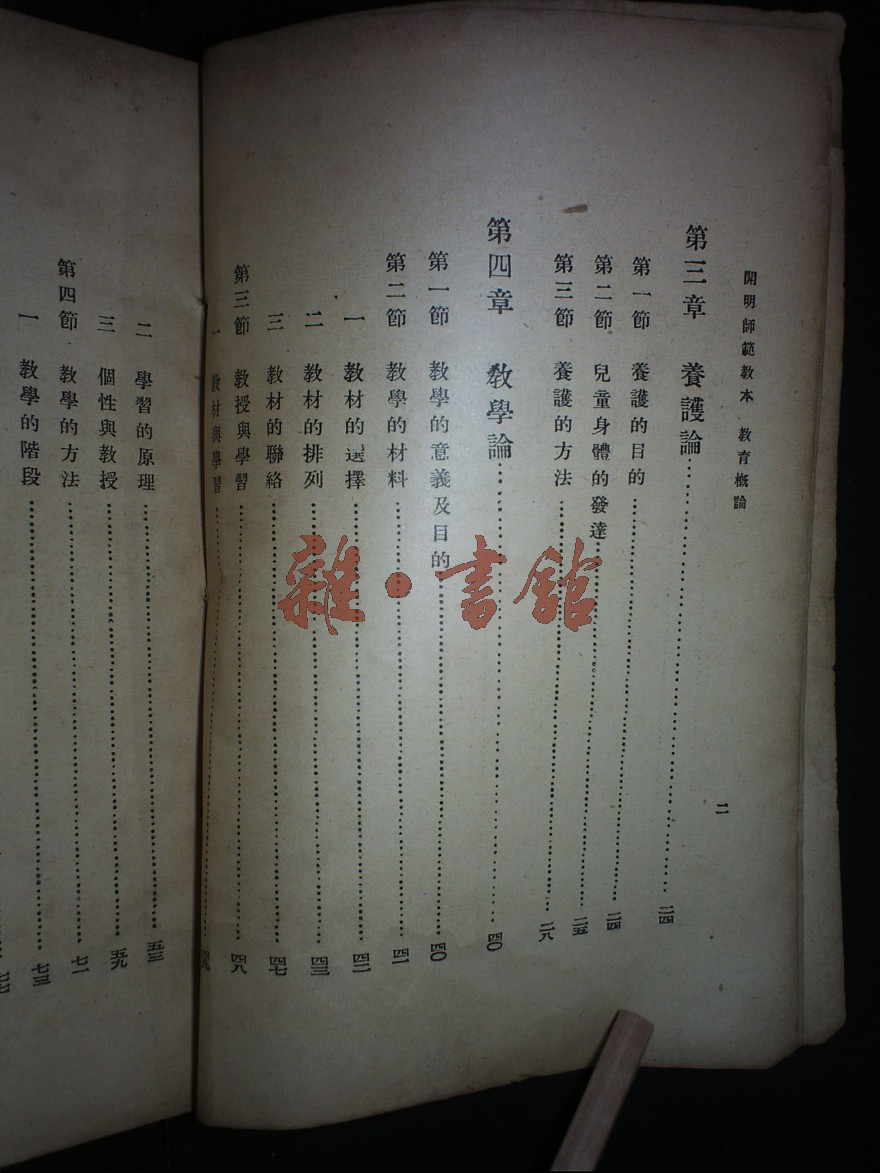 開明師範教本 教育概論
二
第三章 養護論 二四
第一節 養護的目的 二四
第二節 兒童身體的發達 二五
第三節 養護的方法 二八
第四章 教學論 四〇
第一節 教學的意義及目的 四〇
第二節 教學的材料 四一
一 教材的選擇 四二
二 教材的排列 四三
三 教材的聯絡 四七
第三節 教授與學習 四八
一 教材與學習 四九
二 學習的原理 五三
三 個性與教授 五九
第四節 教學的方法 七一
一 教學的階段 七三
雜·書館